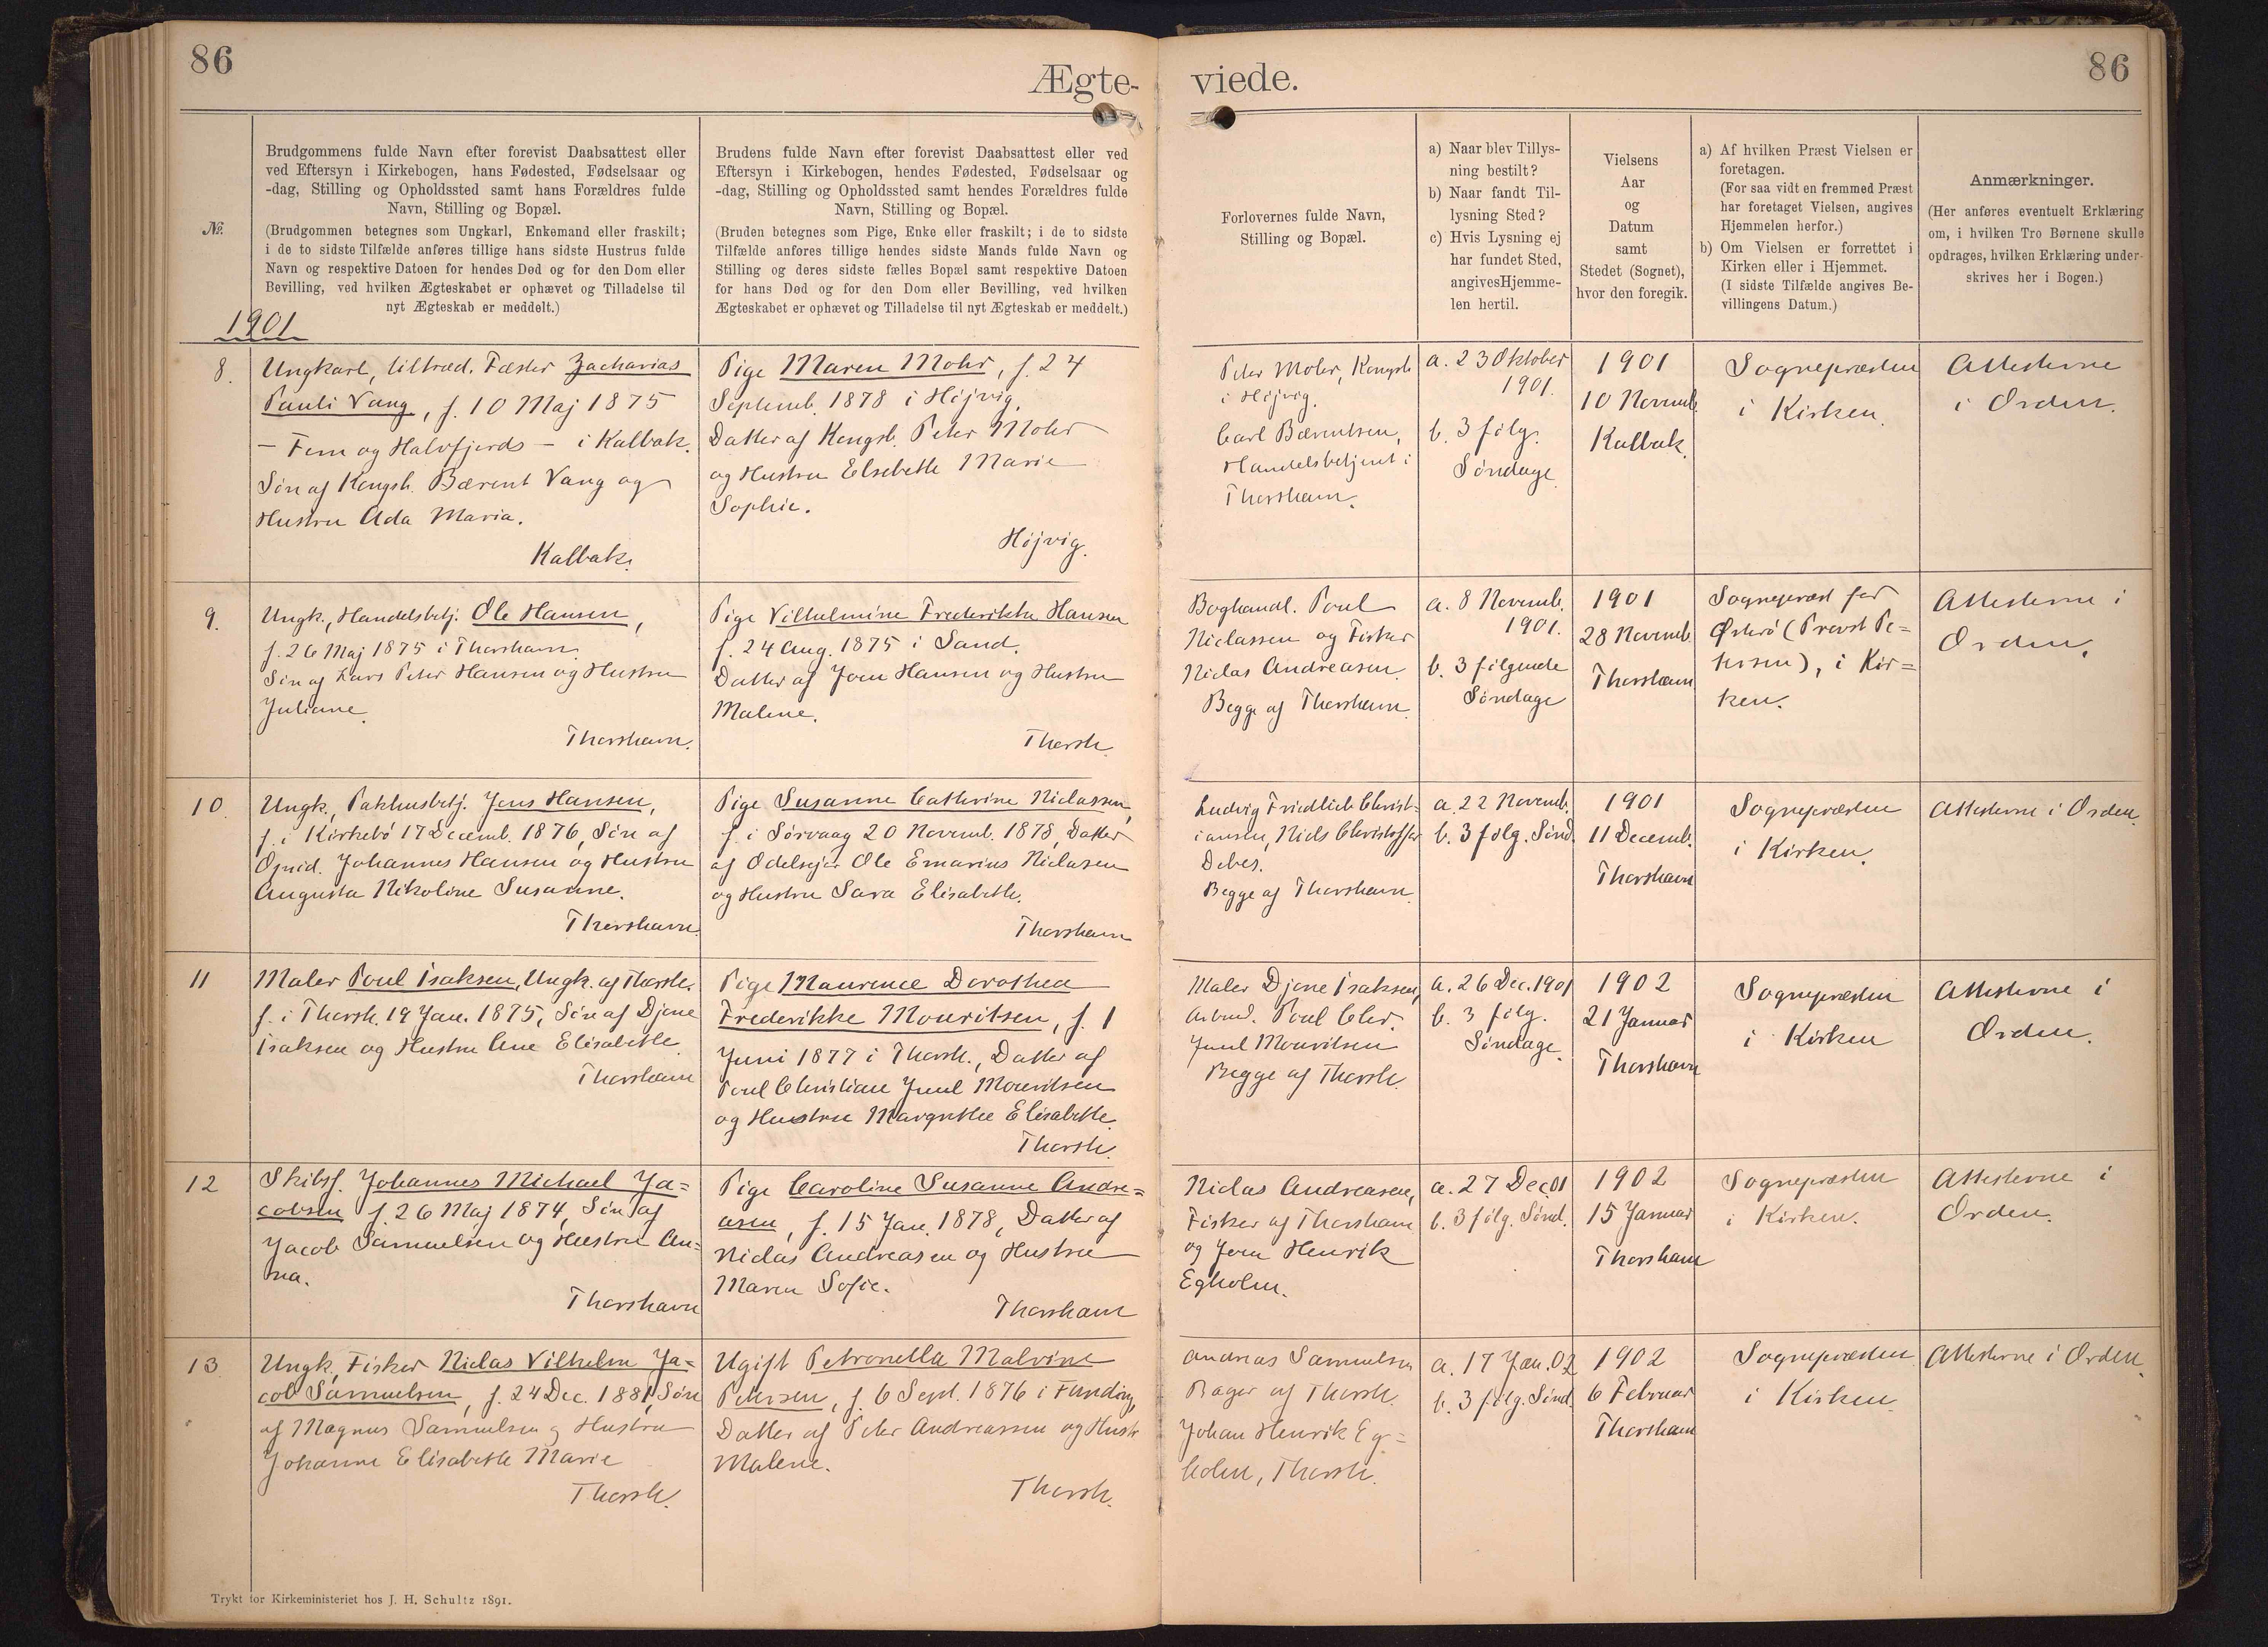 86
Ægte-
viede.
86
№.
Brudgommens fulde Navn efter forevist Daabsattest eller
ved Eftersyn i Kirkebogen, hans Fødested, Fødselsaar og
-dag, Stilling og Opholdssted samt hans Forældres fulde
Navn, Stilling og Bopæl.
(Brudgommen betegnes som Ungkarl, Enkemand eller fraskilt;
i de to sidste Tilfælde anføres tillige hans sidste Hustrus fulde
Navn og respektive Datoen for hendes Død og for den Dom eller
Bevilling, ved hvilken Ægteskabet er ophævet og Tilladelse til
nyt Ægteskab er meddelt.)
Brudens fulde Navn efter forevist Daabsattest eller ved
Eftersyn i Kirkebogen, hendes Fødested, Fødselsaar og
-dag, Stilling og Opholdssted samt hendes Forældres fulde
Navn, Stilling og Bopæl.
(Bruden betegnes som Pige, Enke eller fraskilt; i de to sidste
Tilfælde anføres tillige hendes sidste Mands fulde Navn og
Stilling og deres sidste fælles Bopæl samt respektive Datoen
for hans Død og for den Dom eller Bevilling, ved hvilken
Ægteskabet er ophævet og Tilladelse til nyt Ægteskab er meddelt.)
Forlovernes fulde Navn,
Stilling og Bopæl.
a) Naar blev Tillys-
ning bestilt?
b) Naar fandt Til-
lysning Sted?
c) Hvis Lysning ej
har fundet Sted,
angives Hjemme-
len hertil.
Vielsens
Aar
og
Datum
samt
Stedet (Sognet),
hvor den foregik.
a) Af hvilken Præst Vielsen er
foretagen.
(For saa vidt en fremmed Præst
har foretaget Vielsen, angives
Hjemmelen herfor.)
b) Om Vielsen er forrettet i
Kirken eller i Hjemmet.
(I sidste Tilfælde angives Be-
villingens Datum.)
Anmærkninger.
(Her anføres eventuelt Erklæring
om, i hvilken Tro Børnene skulle
opdrages, hvilken Erklæring under-
skrives her i Bogen.)
1901
8.
Ungkarl, tiltræd. Fæster Zacharias
Pauli Vang, f. 10 Maj 1875
- Fem og Halvfjerds - i Kalbak.
Søn af Kongsb. Bærent Vang og
Hustru Ada Maria.
Kalbak.
Pige Maren Mohr, f. 24
Septemb. 1878 i Højvig,
Datter af Kongsb. Peter Mohr
og Hustru Elsebeth Marie
Sophie.
Højvig.
Peter Mohr, Kongsb
i Højvig.
Carl Bærentsen,
Handelsbetjent i
Thorshavn.
a. 23 Oktober
1901.
b. 3 følg.
Søndage
1901
10 Novemb.
Kalbak.
Sognepræsten
i Kirken.
Attesterne
i Orden.
9.
Ungk., Handelsbetj. Ole Hansen,
f. 26 Maj 1875 i Thorshavn
Søn af Lars Peter Hansen og Hustru
Juliane.
Thorshavn.
Pige Vilhelmine Frederikke Hansen
f. 24 Aug. 1875 i Sand.
Datter af Joen Hansen og Hustru
Malene.
Thorsh.
Boghandl. Poul
Niclassen og Fisker
Niclas Andreasen.
Begge af Thorshavn.
a. 8 Novemb.
1901.
b. 3 følgende
Søndage
1901
28 Novemb.
Thorshavn
Sognepræst for
Østerø (Provst Pe=
tersen), i Kir=
ken.
Attesterne i
Orden.
10.
Ungk., Pakhusbetj. Jens Hansen,
f. i Kirkebø 17 Decemb. 1876, Søn af
Opsid. Johannes Hansen og Hustru
Augusta Nikoline Susanne.
Thorshavn.
Pige Susanne Cathrine Niclassen,
f. i Sørvaag 20 Novemb. 1878, Datter
af Odelsejer Ole Emarius Niclasen
og Hustru Sara Elisabeth.
Thorshavn
Ludvig Friedlieb Christ=
iansen, Niels Christoffer
Debes.
Begge af Thorshavn.
a. 22 Novemb.
b. 3 følg. Sønd.
1901
11 Decemb.
Thorshavn
Sognepræsten
i Kirken.
Attesterne i Orden.
11
Maler Poul Isaksen, Ungk. af Thorsh.
f. i Thorsh. 19 Jan. 1875, Søn af Djone
Isaksen og Hustru Ane Elisabeth
Thorshavn
Pige Maurence Dorothea
Frederikke Mouritsen, f. 1
Juni 1877 i Thorsh., Datter af
Poul Christian Juul Mouritsen
og Hustru Margrethe Elisabeth.
Thorsh.
Maler Djone Isaksen,
Arbmd. Poul Chr.
Juul Mouritsen
Begge af Thorsh.
a. 26 Dec. 1901
b. 3 følg.
Søndage.
1902
21 Januar
Thorshavn
Sognepræsten
i Kirken
Attesterne i
Orden.
12
Skibsf. Johannes Michael Ja=
cobsen f. 26 Maj 1874, Søn af
Jacob Samuelsen og Hustru An=
na.
Thorshavn
Pige Caroline Susanne Andre=
asen, f. 15 Jan. 1878, Datter af
Niclas Andreasen og Hustru
Maren Sofie.
Thorshavn
Niclas Andreasen,
Fisker af Thorshavn
og Joen Henrik
Egholm.
a. 27 Dec 01
b. 3 følg. Sønd.
1902
15 Januar
Thorshavn
Sognepræsten
i Kirken.
Attesterne i
Orden.
13
Ungk., Fisker Niclas Vilhelm Ja=
cob Samuelsen, f. 24 Dec. 1881, Søn
af Magnus Samuelsen og Hustru
Johanne Elisabeth Marie
Thorsh.
Ugift Petronella Malvine
Petersen, f. 6 Sept. 1876 i Funding,
Datter af Peter Andreassen og Hustr
Malene.
Thorsh.
Andreas Samuelsen
Bager af Thorsh.
Johan Henrik Eg=
holm, Thorsh.
a. 17 Jan. 02
b. 3 følg. Sønd.
1902
6 Februar
Thorshavn
Sognepræsten
i Kirken.
Attesterne i Orden.
Trykt for Kirkeministeriet hos J. H. Schultz 1891.